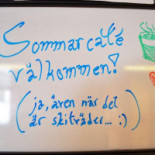 Sommarcafé
välkommen!
(ja, även när det
är skitväder... :)